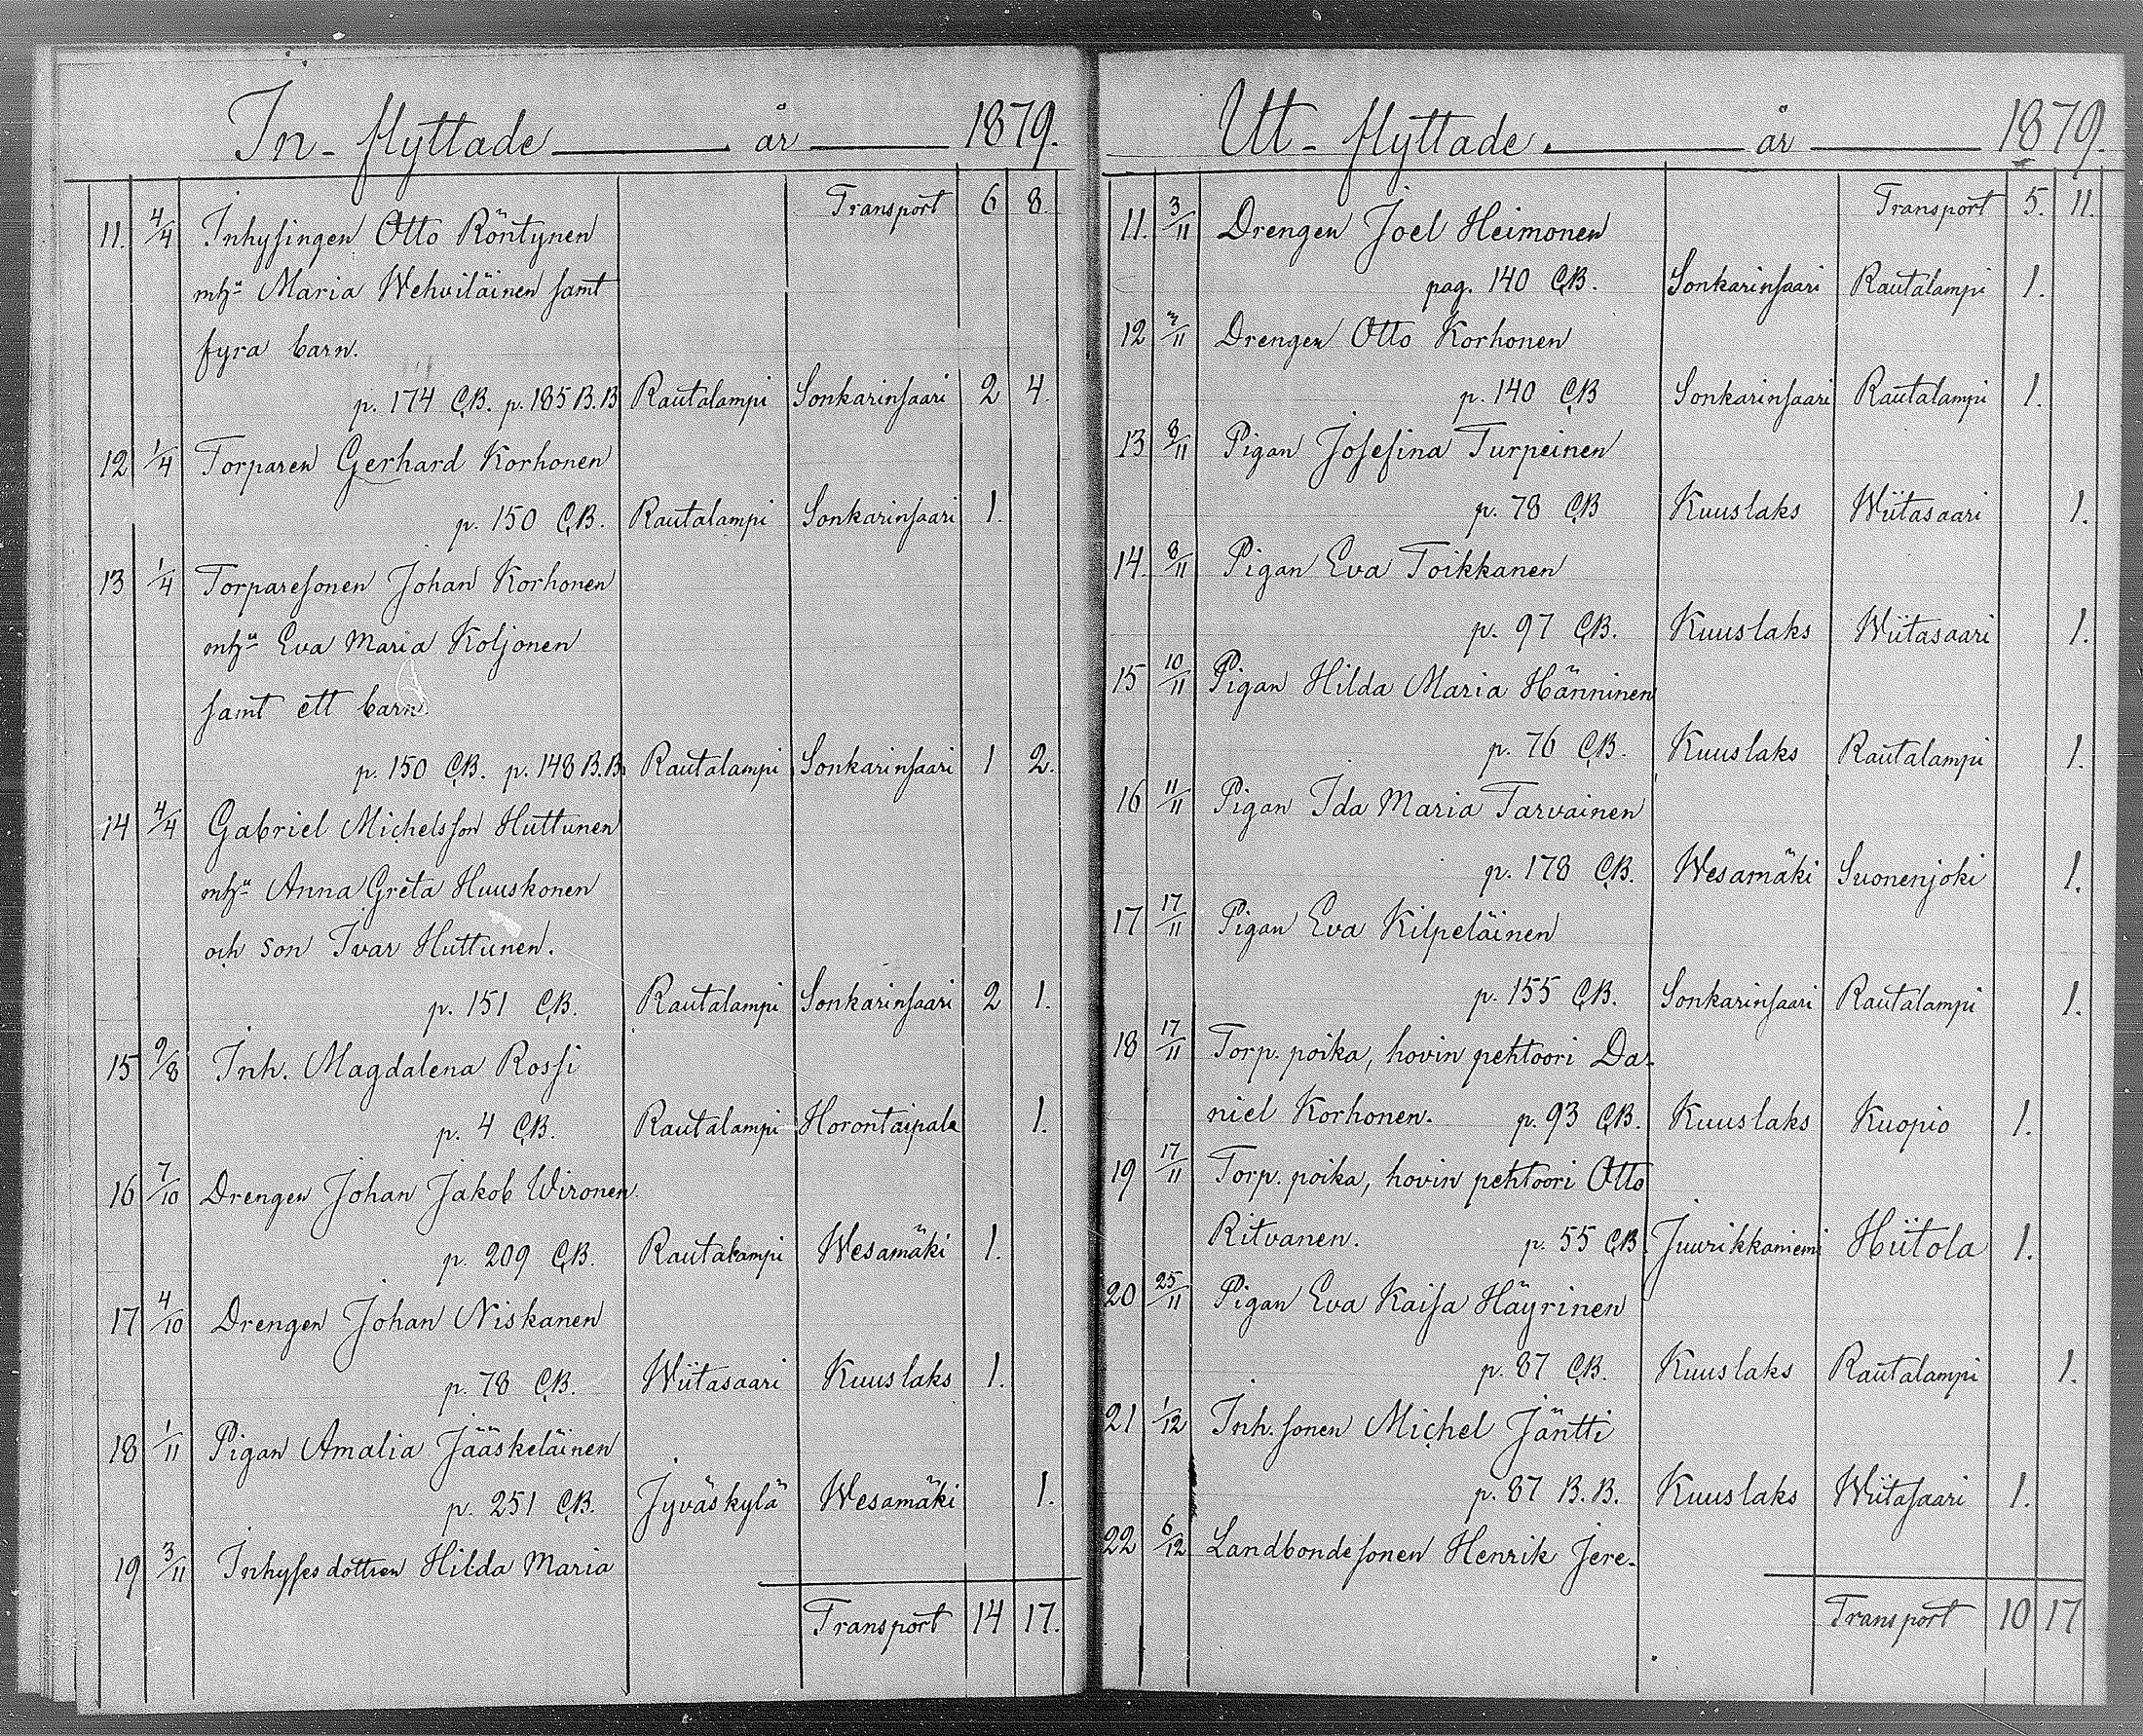 In-flyttade år 1879.
Transport 6 8.
11. 4/4 Inhysingen Otto Röntynen
mhu Maria Wehviläinen samt
fyra barn.
p. 174 C.B. p. 185 B.B Rautalampi Sonkarinsaari 2 4.
12 1/4 Torparen Gerhard Korhonen
p. 150 C.B. Rautalampi Sonkarinsaari 1.
13 1/4 Torparesonen Johan Korhonen
mhu Eva Maria Koljonen
samt ett barn
p. 150 C.B. p. 148 B.B. Rautalampi Sonkarinsaari 1 2.
14 4/4 Gabriel Michelsson Huttunen
mhu Anna Greta Huuskonen
och son Ivar Huttunen.
p. 151 C.B. Rautalampi Sonkarinsaari 2 1.
15 9/8 Inh. Magdalena Rossi
p. 4 C.B. Rautalampi Horontaipale 1.
16 7/10 Drengen Johan Jakob Wironen.
p. 209 C.B. Rautalampi Wesamäki 1.
17 4/10 Drengen Johan Niskanen
p. 78 C.B. Wiitasaari Kuuslaks 1.
18 1/11 Pigan Amalia Jääskeläinen
p. 251 C.B. Jyväskylä Wesamäki 1.
19 3/11 Inhyses dottren Hilda Maria
Transport 14 17.
Ut-flyttade. år 1879.
Transport 5. 11.
11. 3/11 Drengen Joel Heimonen
pag. 140 C.B. Sonkarinsaari Rautalampi 1.
12 3/11 Drengen Otto Korhonen
p. 140 C.B Sonkarinsaari Rautalampi 1.
13 8/11 Pigan Josefina Turpeinen
p. 78 C.B Kuuslaks Wiitasaari 1.
14. 8/11 Pigan Eva Toikkanen
p. 97 C.B. Kuuslaks Wiitasaari 1.
15 10/11 Pigan Hilda Maria Hänninen
p. 76 C.B. Kuuslaks Rautalampi 1.
16 11/11 Pigan Ida Maria Tarvainen
p. 178 C.B. Wesamäki Suonenjoki 1.
17 17/11 Pigan Eva Kilpeläinen
p. 155 C.B. Sonkarinsaari Rautalampi 1.
18 17/11 Torp. poika, hovin pehtoori Da-
niel Korhonen. p. 93 C.B. Kuuslaks Kuopio 1.
19 17/11 Torp. poika, hovin pehtoori Otto
Ritvanen. p. 55 C.B. Juurikkaniemi Hiitola 1.
20 25/11 Pigan Eva Kaisa Häyrinen
p. 87 C.B. Kuuslaks Rautalampi 1.
21 1/12 Inh. sonen Michel Jäntti
p. 87 B.B. Kuuslaks Wiitasaari 1.
22 6/12 Landbondesonen Henrik Jere-
Transport 10 17